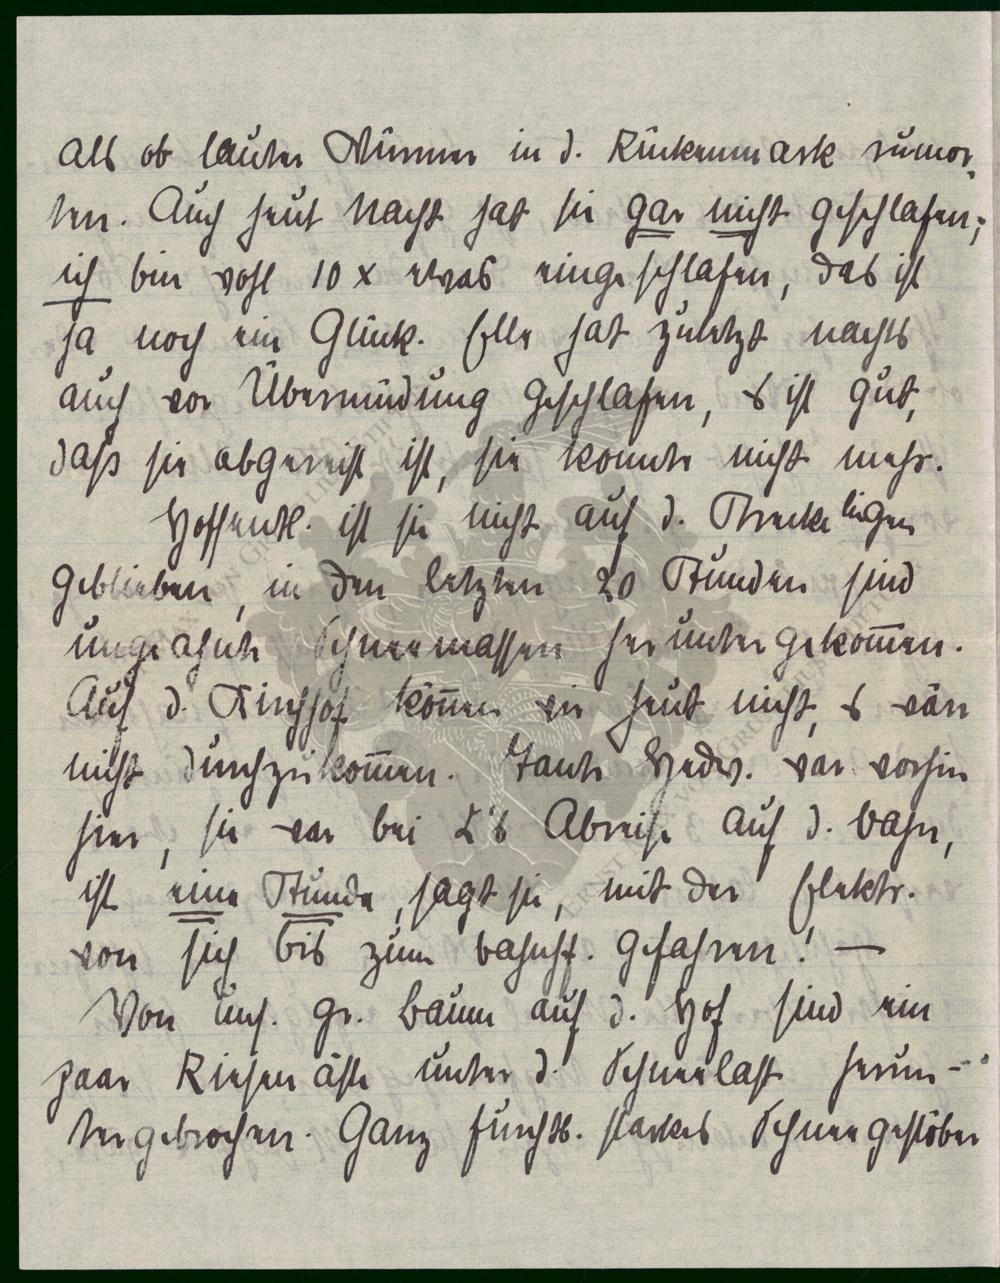 als ob lauter Würmer in d. Rückenmark rumor-
ten. Auch heut Nacht hat sie gar nicht geschlafen;
ich bin wohl 10 x etwas eingeschlafen, das ist
ja noch ein Glück. Elle hat zuletzt nachts
auch vor Übermüdung geschlafen, es ist gut,
daß sie abgereist ist, sie konnte nicht mehr.
Hoffentl. ist sie nicht auf d. Strecke liegen
geblieben, in den letzten 20 Stunden sind
ungeahnte Schneemassen heruntergekom̄en.
Auf d. Kirchhof kön̄en wir heut nicht, es wäre
nicht durchzukom̄en. Tante Hedw. war vorhin
hier, sie war bei E's Abreise auf d. Bahn,
ist eine Stunde, sagt sie, mit der Elektr.
von sich bis zum Bahnhf. gefahren! —
Von uns. gr. Baum auf d. Hof sind ein
paar Riesenäste unter d. Schneelast herun-
tergebrochen. Ganz furchtb. starkes Schneegestöber